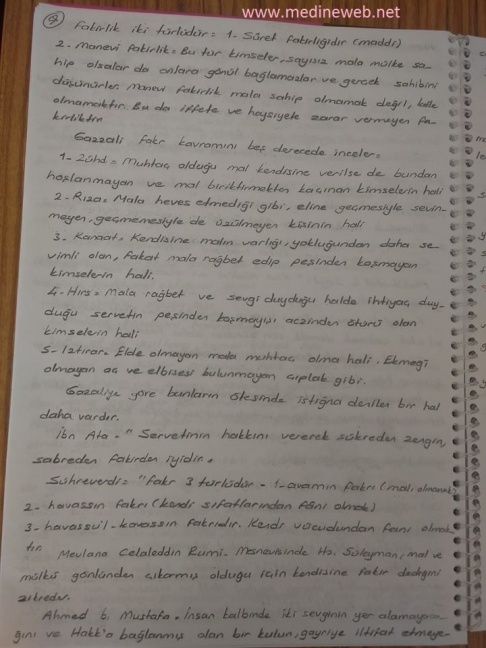 www.medineweb.net
Fakirlik iki türlüdür = 1- Sûret fakirliğidir (maddi)
2- Manevi fakirlik = Bu tür kimseler, sayısız mala mülke sa-
hip olsalar da onlara gönül bağlamazlar ve gerçek sahibini
düşünürler. Manevi fakirlik mala sahip olmamak değil, köle
olmamaktır. Bu da iffete ve haysiyete zarar vermeyen fa-
kirliktir.
Gazzali fakr kavramını beş derecede inceler =
1- Zühd = Muhtaç olduğu mal kendisine verilse de bundan
hoşlanmayan ve mal biriktirmekten kaçınan kimselerin hali
2- Rıza = Mala heves etmediği gibi, eline geçmesiyle sevin-
meyen, geçmemesiyle de üzülmeyen kişinin hali
3- Kanaat = Kendisine malın varlığı, yokluğundan daha se-
vimli olan, fakat mala rağbet edip peşinden koşmayan
kimselerin hali.
4- Hırs = Mala rağbet ve sevgi duyduğu halde ihtiyaç duy-
duğu servetin peşinden koşmayışı aczinden ötürü olan
kimselerin hali
5- Iztırar = Elde olmayan mala muhtaç olma hali. Ekmeği
olmayan aç ve elbisesi bulunmayan çıplak gibi.
Gazaliye göre bunların ötesinde istiğna denilen bir hal
daha vardır.
İbn Ata - "Servetinin hakkını vererek şükreden zengin,
sabreden fakirden iyidir.
Sühreverdi = "fakr 3 türlüdür - 1- avamın fakrı (malı olmamak)
2- havassın fakrı (kendi sıfatlarından fâni olmak)
3- havassu'l-havassın fakrıdır. Kendi vücudundan fani olmak-
tır
Mevlana Celaleddin Rumi - Mesnevisinde Hz. Süleyman, mal ve
mülkü gönlünden çıkarmış olduğu için kendisine fakir dediğini
zikreder.
Ahmed b. Mustafa - İnsan kalbinde iki sevginin yer
ğını ve Hakk'a bağlanmış olan bir kulun, gayriye iltifat etmeye-